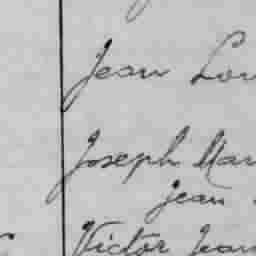 Jean Lou
Joseph Mar
jean
Victor Jean